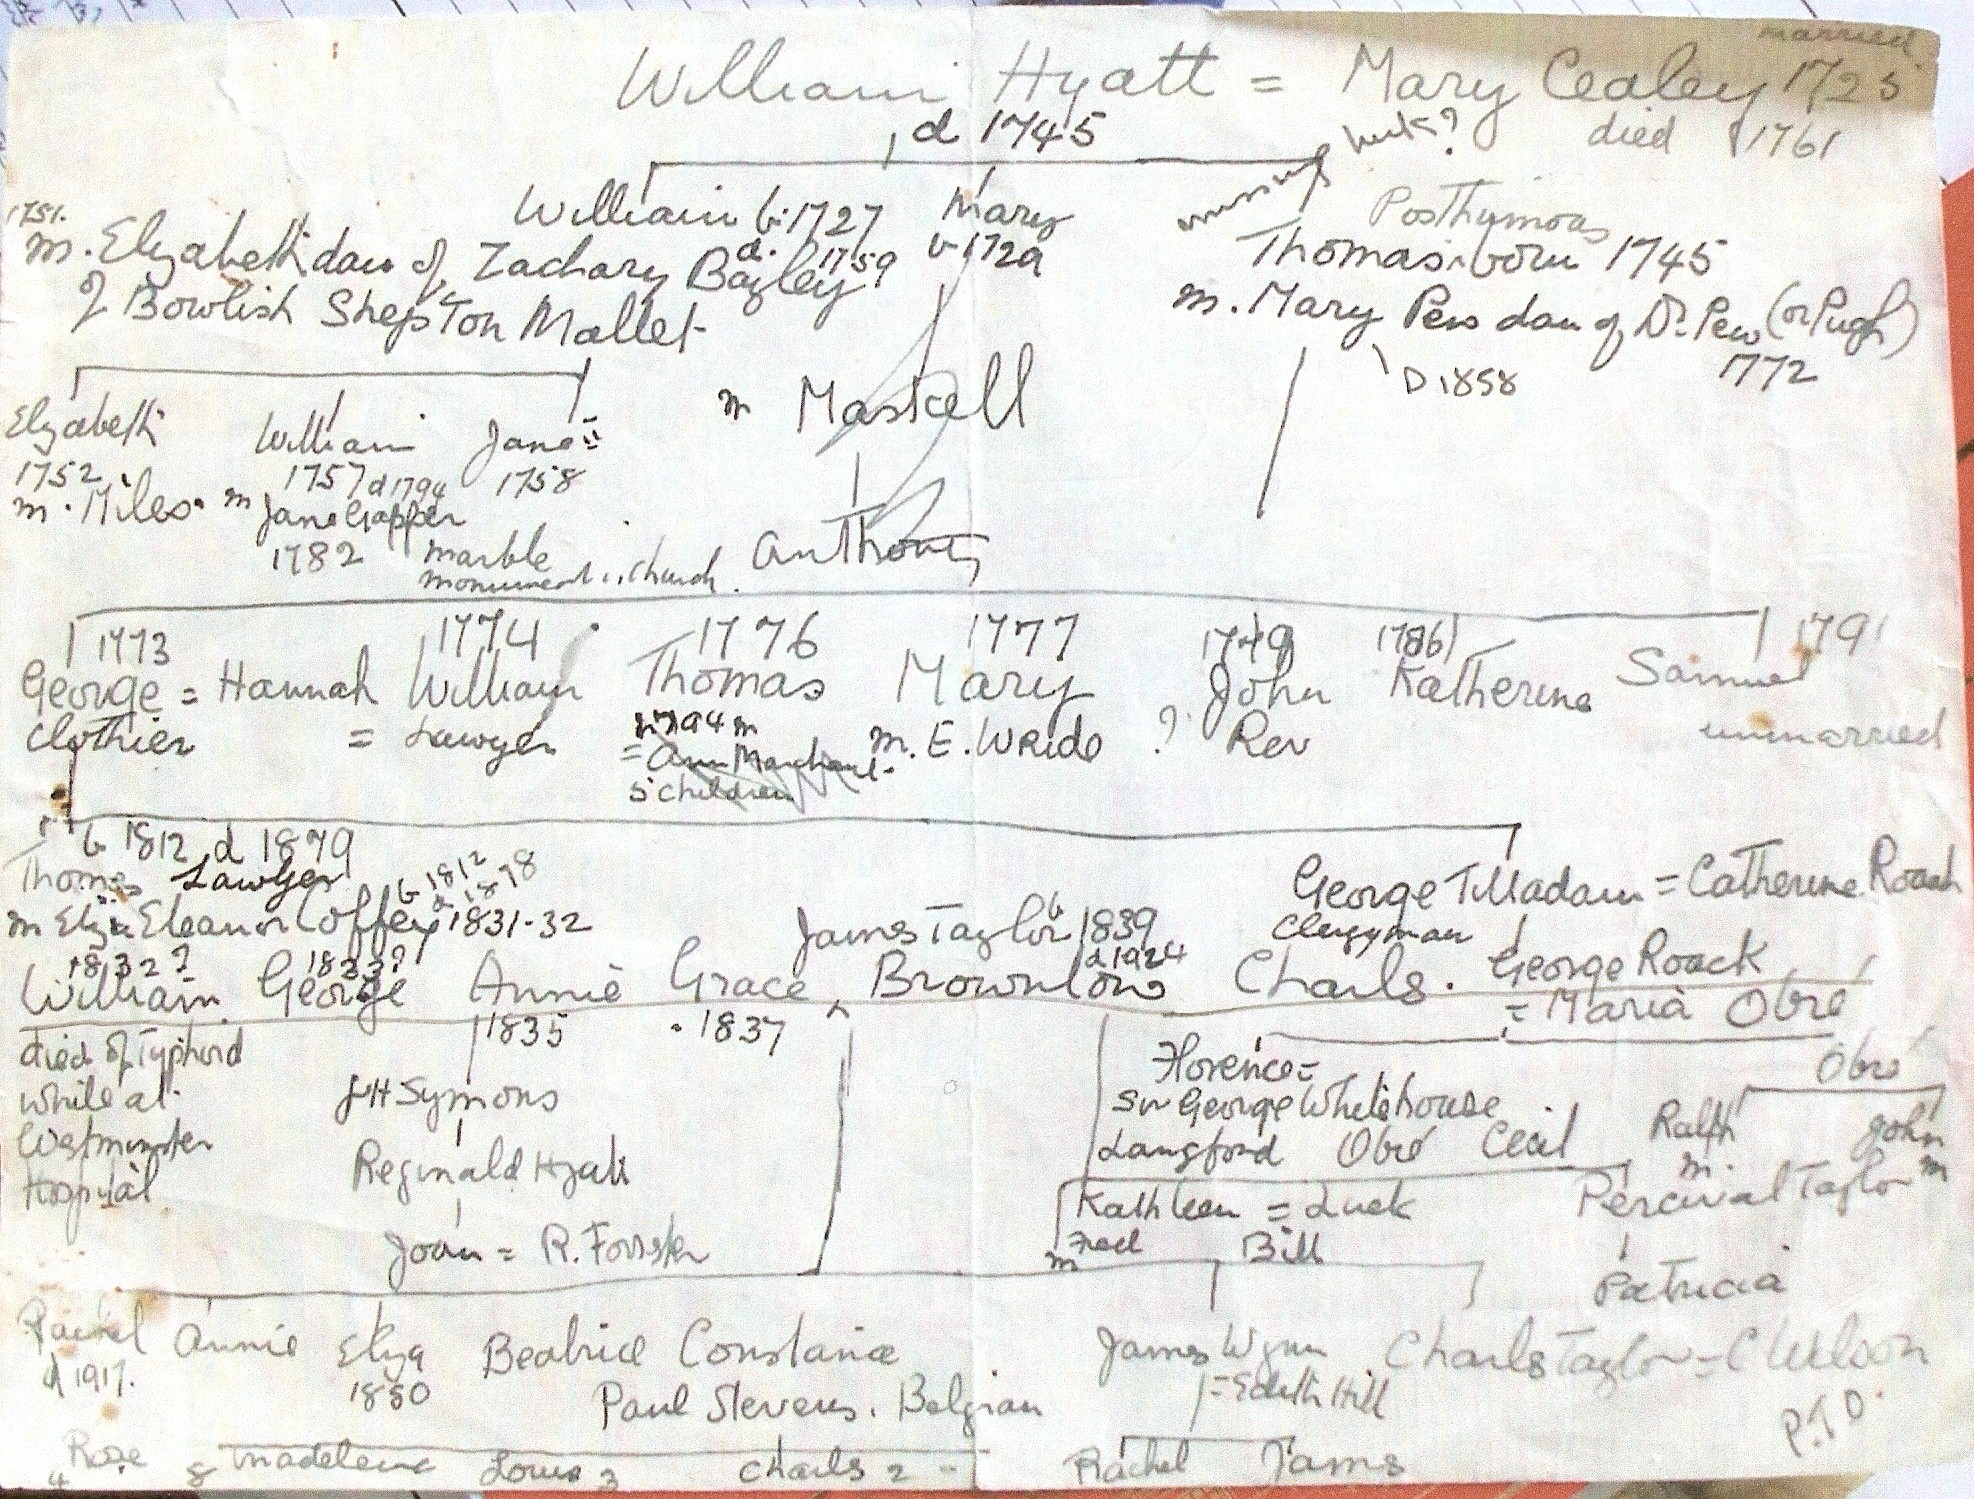 married
William Hyatt = Mary Cealey 1725
d 1745
died 1761
William b. 1727
Mary
b 1729
Posthumous
Thomas born 1745
1751.
m. Elizabeth dau of Zachary Bayley d. 1759
of Bowlish Shepton Mallet
m. Mary Pew dau of Dr Pew (or Pugh)
1772
D 1858
Elizabeth
1752
m. Miles.
William
1757 d 1794
m Jane Gapper
1782
marble
monument in church.
Jane
1758
m Maskell
Anthony
1773
George = Hannah
Clothier
1774
William
= Lawyer
1776
Thomas
1794 m
= Ann Marchant
5 children
1777
Mary
m. E. Wride
?
John
Rev
1786
Katherine
1791
Samuel
unmarried
b 1812 d 1879
Thomas Lawyer
m Eliza Eleanor Coffey 1831-32
b 1812
d 1878
George Tilladam = Catherine Roach
Clergyman
James Taylor b 1839
d 1924
1832?
William
1833?
George
Annie
1835
Grace
1837
Brownlow
Charls.
George Roach
= Maria Obré
died of Typhoid
while at
Westminster
Hospital
J H Symons
Reginald Hyatt
Joan = R. Forrster
Florence =
Sir George Whitehouse
Langford Obré Cecil
Obré
Ralph
m.
John
m
Percival Taylor
Patricia
Kathleen = Luck
m Fred Bill
Rachel
d 1917.
Annie
Eliza
1880
Beatrice Constance
Paul Stevens. Belgian
James Wynn
= Edith Hill
Charls Taylor = C Wilson
P.T.O.
Rose
4
8 Madeleine
Louis 3
Charls 2
Rachel James